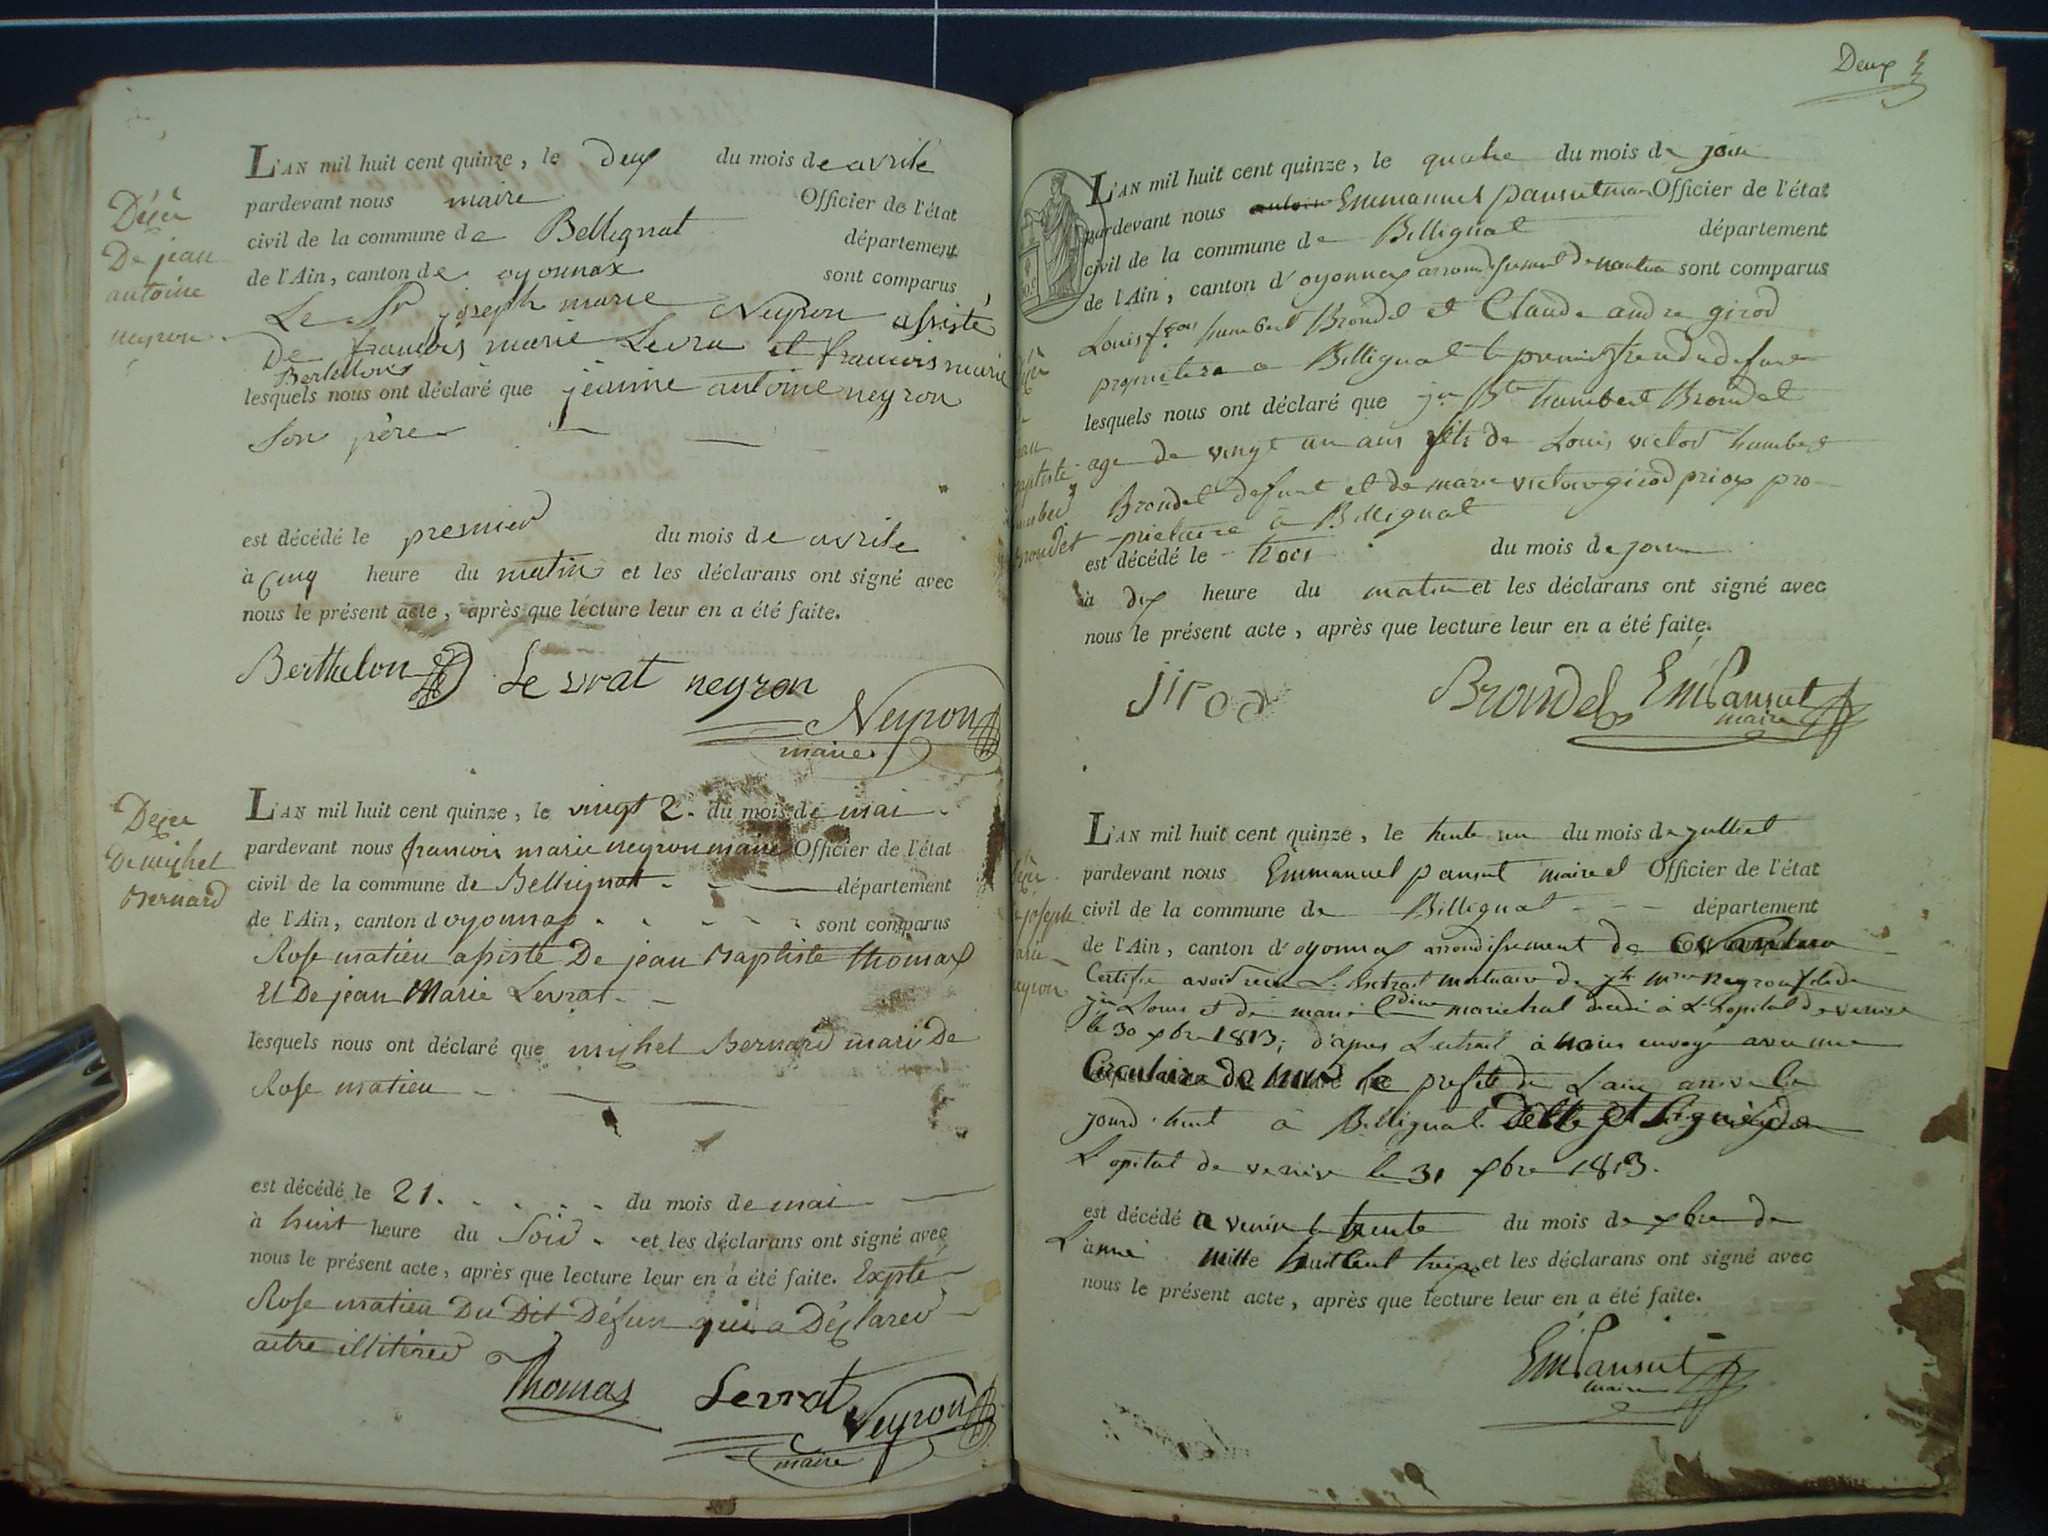 Décè
De jean
antoine
neyron
L'AN mil huit cent quinze, le deux du mois de avrile
pardevant nous maire Officier de l'état
civil de la commune de Bellignat département
de l'Ain, canton de oyonnax sont comparus
Le Sr joseph marie Neyron assisté
De francois marie Levra et francois marie
Berthelon
lesquels nous ont déclaré que jeanne antoine neyron
son père
est décédé le premier du mois de avrile
à cinq heure du matin et les déclarans ont signé avec
nous le présent acte, après que lecture leur en a été faite.
Berthelon Le vrat neyron
Neyron
maire
Decer
De michel
Bernard
L'AN mil huit cent quinze, le vingt 2. du mois de mai
pardevant nous francois marie neyron maire Officier de l'état
civil de la commune de Bellignat département
de l'Ain, canton d oyonnax sont comparus
Rose matieu assisté De jean Baptiste thomas
Et De jean Marie Levrat
lesquels nous ont déclaré que michel Bernard mari De
Rose matieu
est décédé le 21. du mois de mai
à huit heure du Soir et les déclarans ont signé avec
nous le présent acte, après que lecture leur en a été faite. Expté
Rose matieu Du Dit Défun qui a Déclarer
aitre illitérer
Thomas Levrat Neyron
maire
Deux
L'AN mil huit cent quinze, le quatre du mois de juin
pardevant nous Emmanuel pansut maire Officier de l'état
civil de la commune de Billignat département
de l'Ain, canton d'oyonnax arrondissement de nantua sont comparus
Louis fçois humbert Brondel et Claude andre girod
propriétere a Billignat le premier frere du defunt
lesquels nous ont déclaré que jn Bte humbert Brondel
age de vingt un ans fils de Louis victor humbert
Brondel defunt et de marie victoire girod pro-
prietaire à Billignat
est décédé le trois du mois de juin
à dix heure du matin et les déclarans ont signé avec
nous le présent acte, après que lecture leur en a été faite.
jirod Brondel Em Pansut
maire
L'AN mil huit cent quinze, le trente un du mois de julliet
pardevant nous Emmanuel pansut maire et Officier de l'état
civil de la commune de Billignat département
de l'Ain, canton d'oyonnax arrondissement de Nantua
Certifie avoir recu L'Extrait mortuaire de jh mie neyron fils de
jn Louis et de marie maréchal décédé à L'hopital de venise
le 30 xbre 1813, d'apres L'extrait à nous envoyé avec une
Circulaire de le prefet de L'ain arrivé le
jourd'huit à Billignat. Datte et Signé de
L'opital de venise le 31 xbre 1813.
est décédé a venise le trente du mois de xbre de
L'anné mille huit Cent treize et les déclarans ont signé avec
nous le présent acte, après que lecture leur en a été faite.
Em Pansut
maire